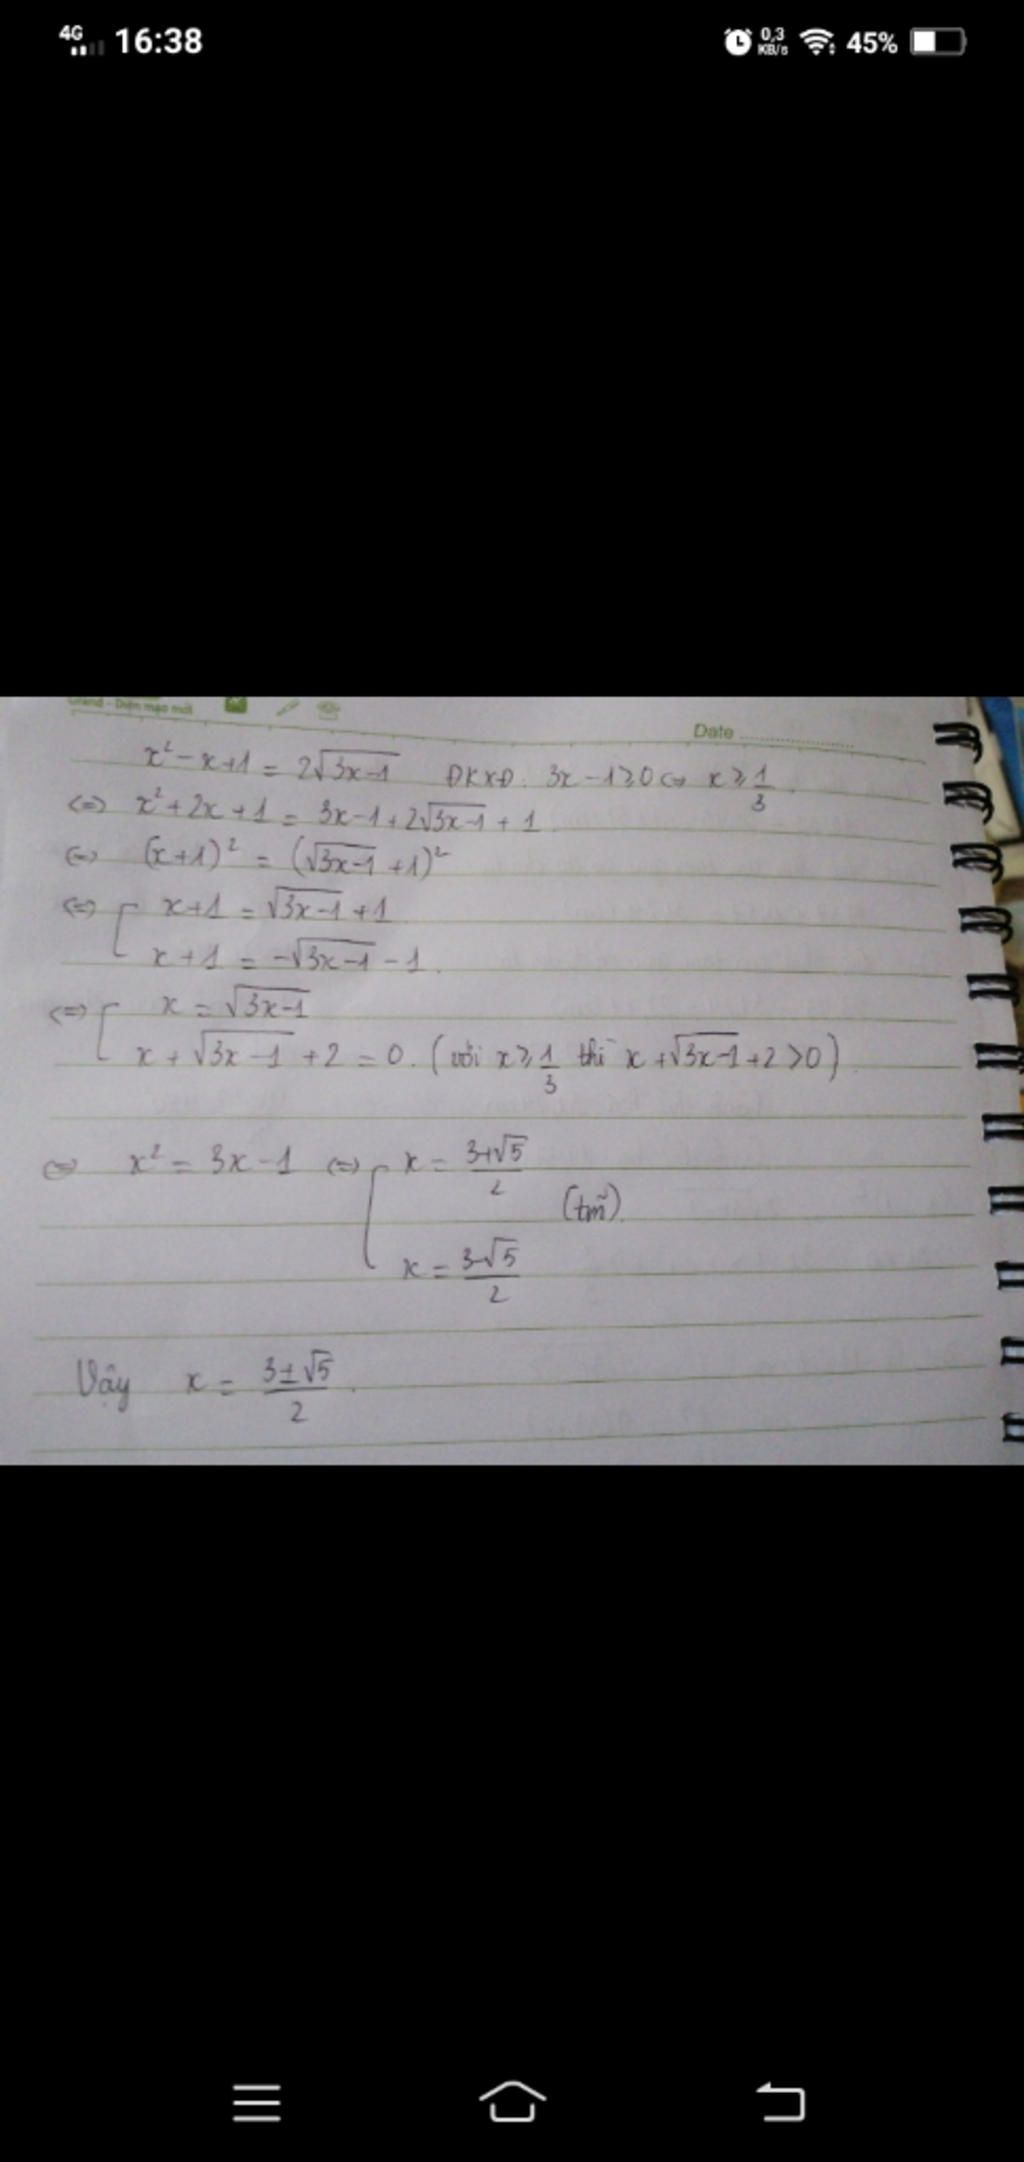 4G 16:38 0,3 KB/s 45%
Grand - Diện mạo mới
Date
x² - x + 1 = 2√(3x-1) ĐKXĐ: 3x - 1 ≥ 0 ⇔ x ≥ 1/3
⇔ x² + 2x + 1 = 3x - 1 + 2√(3x-1) + 1
⇔ (x+1)² = (√(3x-1) + 1)²
⇔ [ x + 1 = √(3x-1) + 1
x + 1 = -√(3x-1) - 1
⇔ [ x = √(3x-1)
x + √(3x-1) + 2 = 0. (với x ≥ 1/3 thì x + √(3x-1) + 2 > 0)
⇔ x² = 3x - 1 ⇔ [ x = (3+√5)/2
(tm)
x = (3-√5)/2
Vậy x = (3±√5)/2.